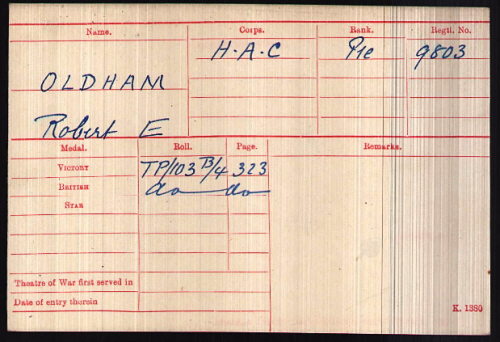 Name. Corps. Rank. Regtl. No.
H.A.C Pte 9803
OLDHAM
Robert E
Medal. Roll. Page. Remarks.
VICTORY TP/103 B/4 323
BRITISH do do
STAR
Theatre of War first served in
Date of entry therein
K. 1380